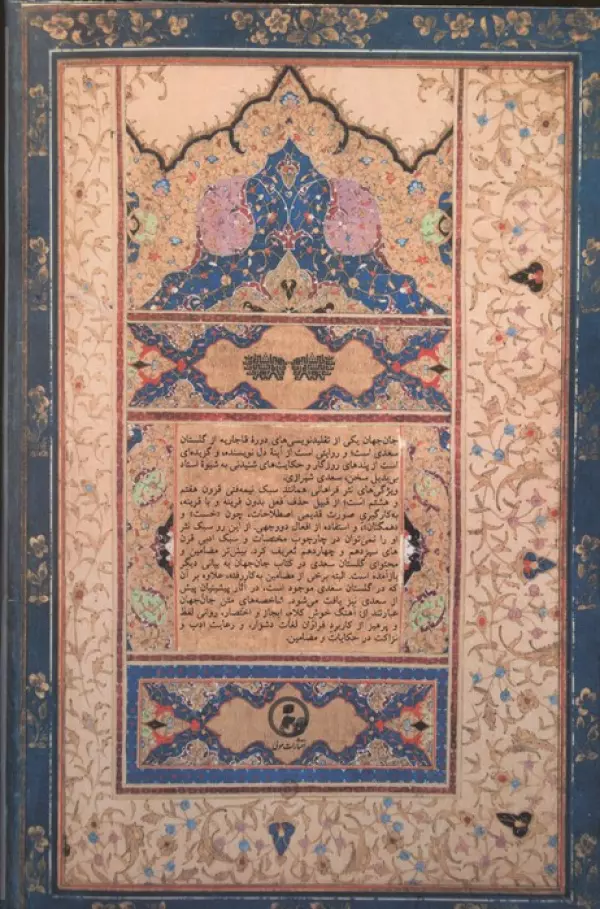 جان‌جهان یکی از تقلیدنویسی‌های دورهٔ قاجاریه از گلستان
سعدی است؛ و روایتی است از آینهٔ دل نویسنده و گزیده‌ای
است از پندهای روزگار و حکایت‌های شنیدنی به شیوهٔ استاد
بی‌بدیل سخن، سعدی شیرازی.
ویژگی‌های نثر فراهانی همانند سبک نیمه‌فنی قرون هفتم
و هشتم است؛ از قبیل حذف فعل بدون قرینه و با قرینه،
به‌کارگیری صورت قدیمی اصطلاحات، چون «خست» و
«همگنان»، و استفاده از افعال دووجهی. از این رو سبک نثر
او را نمی‌توان در چارچوب مختصات و سبک ادبی قرن
های سیزدهم و چهاردهم تعریف کرد. بیش‌تر مضامین و
محتوای گلستان سعدی در کتاب جان‌جهان به بیانی دیگر
بازآمده است. البته برخی از مضامین به‌کاررفته، علاوه بر آن
که در گلستان سعدی موجود است، در آثار پیشینیان پیش
از سعدی نیز یافت می‌شود. شاخصه‌های متن جان‌جهان
عبارتند از: آهنگ خوش کلام، ایجاز و اختصار، روانی لفظ
و پرهیز از کاربرد فراوان لغات دشوار، و رعایت ادب و
نزاکت در حکایات و مضامین.
انتشارات مولی